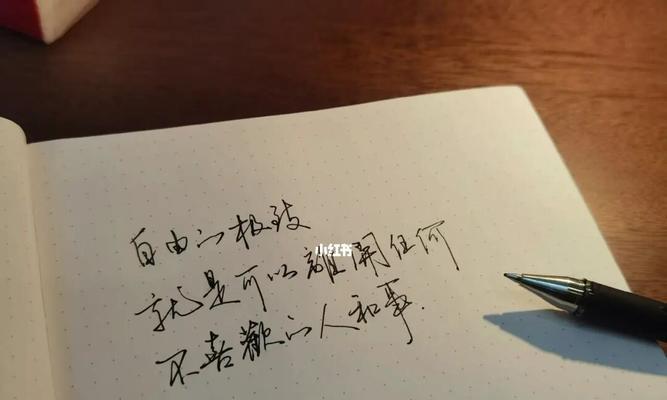 自由的极致
小红书
就是可以離開任何
不喜歡的人和事.